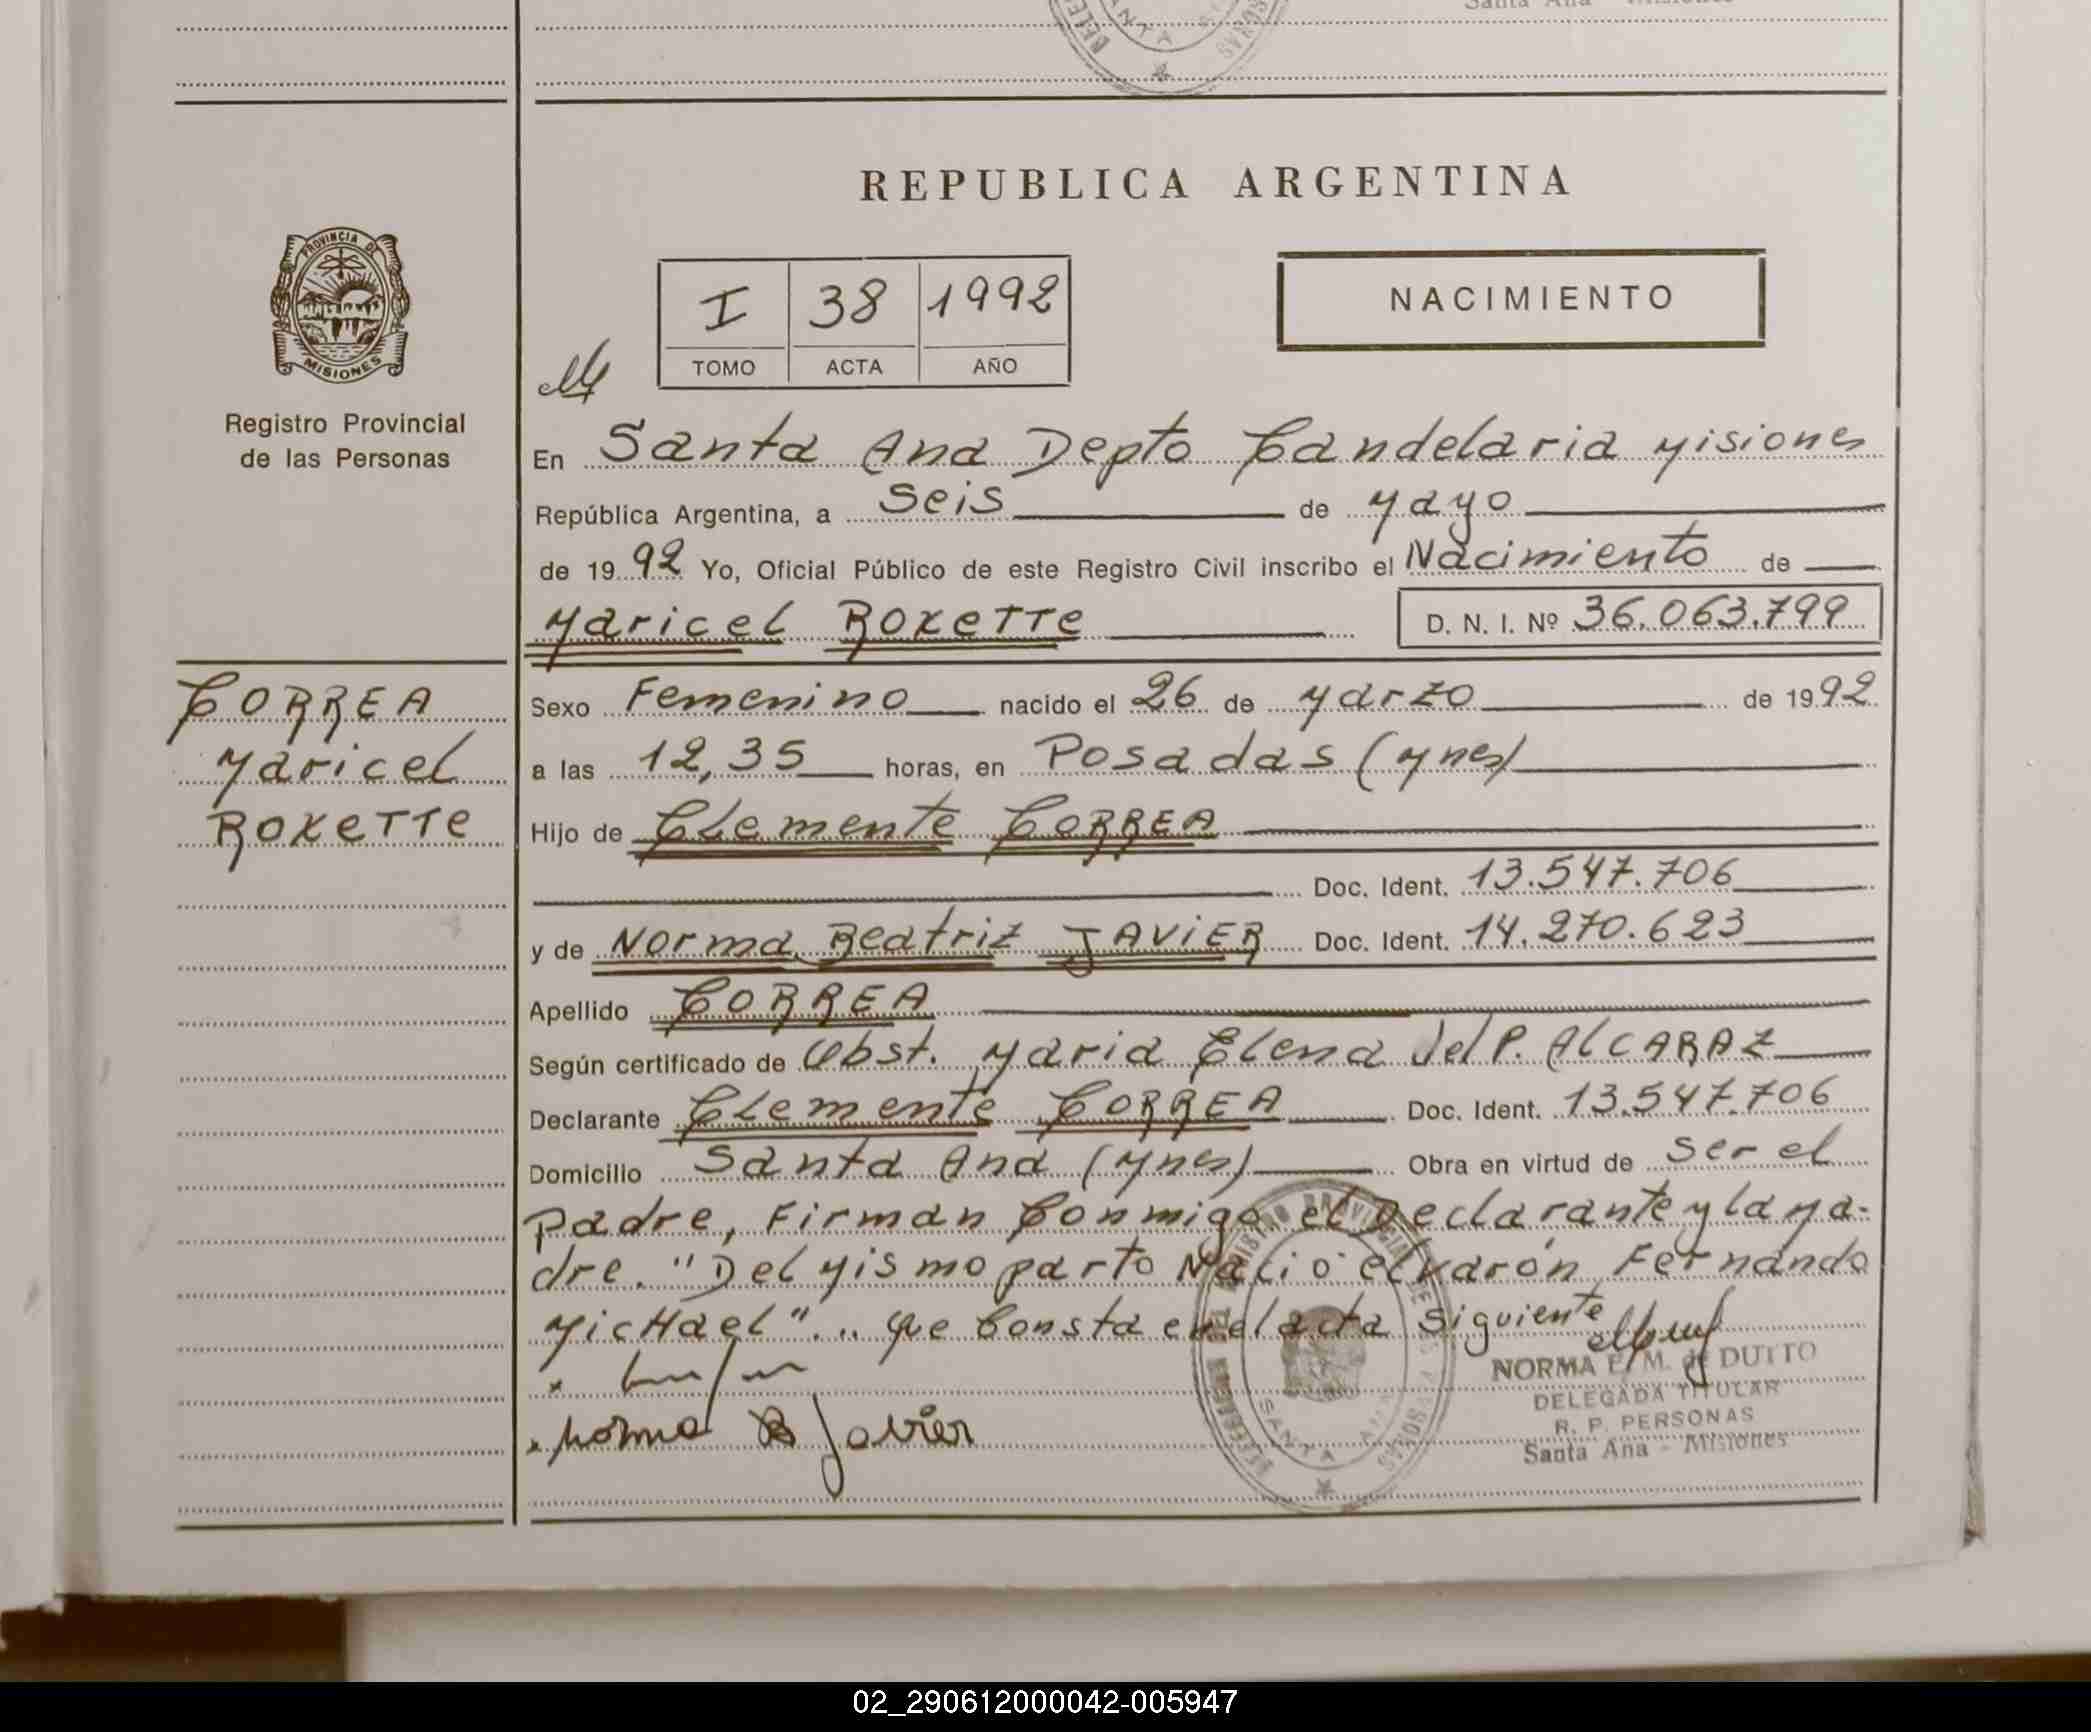 Santa Ana - Misiones
REPUBLICA ARGENTINA
PROVINCIA DE
MISIONES
Registro Provincial
de las Personas
I 38 1992
TOMO ACTA AÑO
NACIMIENTO
En Santa Ana Depto Candelaria Misiones
República Argentina, a seis de Mayo
de 1992 Yo, Oficial Público de este Registro Civil inscribo el Nacimiento de
Maricel Roxette D. N. I. Nº 36.063.799
CORREA
Maricel
Roxette
Sexo Femenino nacido el 26 de Marzo de 1992
a las 12,35 horas, en Posadas (Mnes)
Hijo de Clemente CORREA
Doc. Ident. 13.547.706
y de Norma Beatriz JAVIER Doc. Ident. 14.270.623
Apellido CORREA
Según certificado de Obst. Maria Elena del P. ALCARAZ
Declarante Clemente CORREA Doc. Ident. 13.547.706
Domicilio Santa Ana (Mnes) Obra en virtud de ser el
Padre, Firman Conmigo el Declarante y la Ma-
dre. "Del Mismo parto Nacio el varón Fernando
Michael"... que Consta en el acta siguiente
Norma B Javier
NORMA E. M. de DUTTO
DELEGADA TITULAR
R. P. PERSONAS
Santa Ana - Misiones
SANTA ANA
02_290612000042-005947